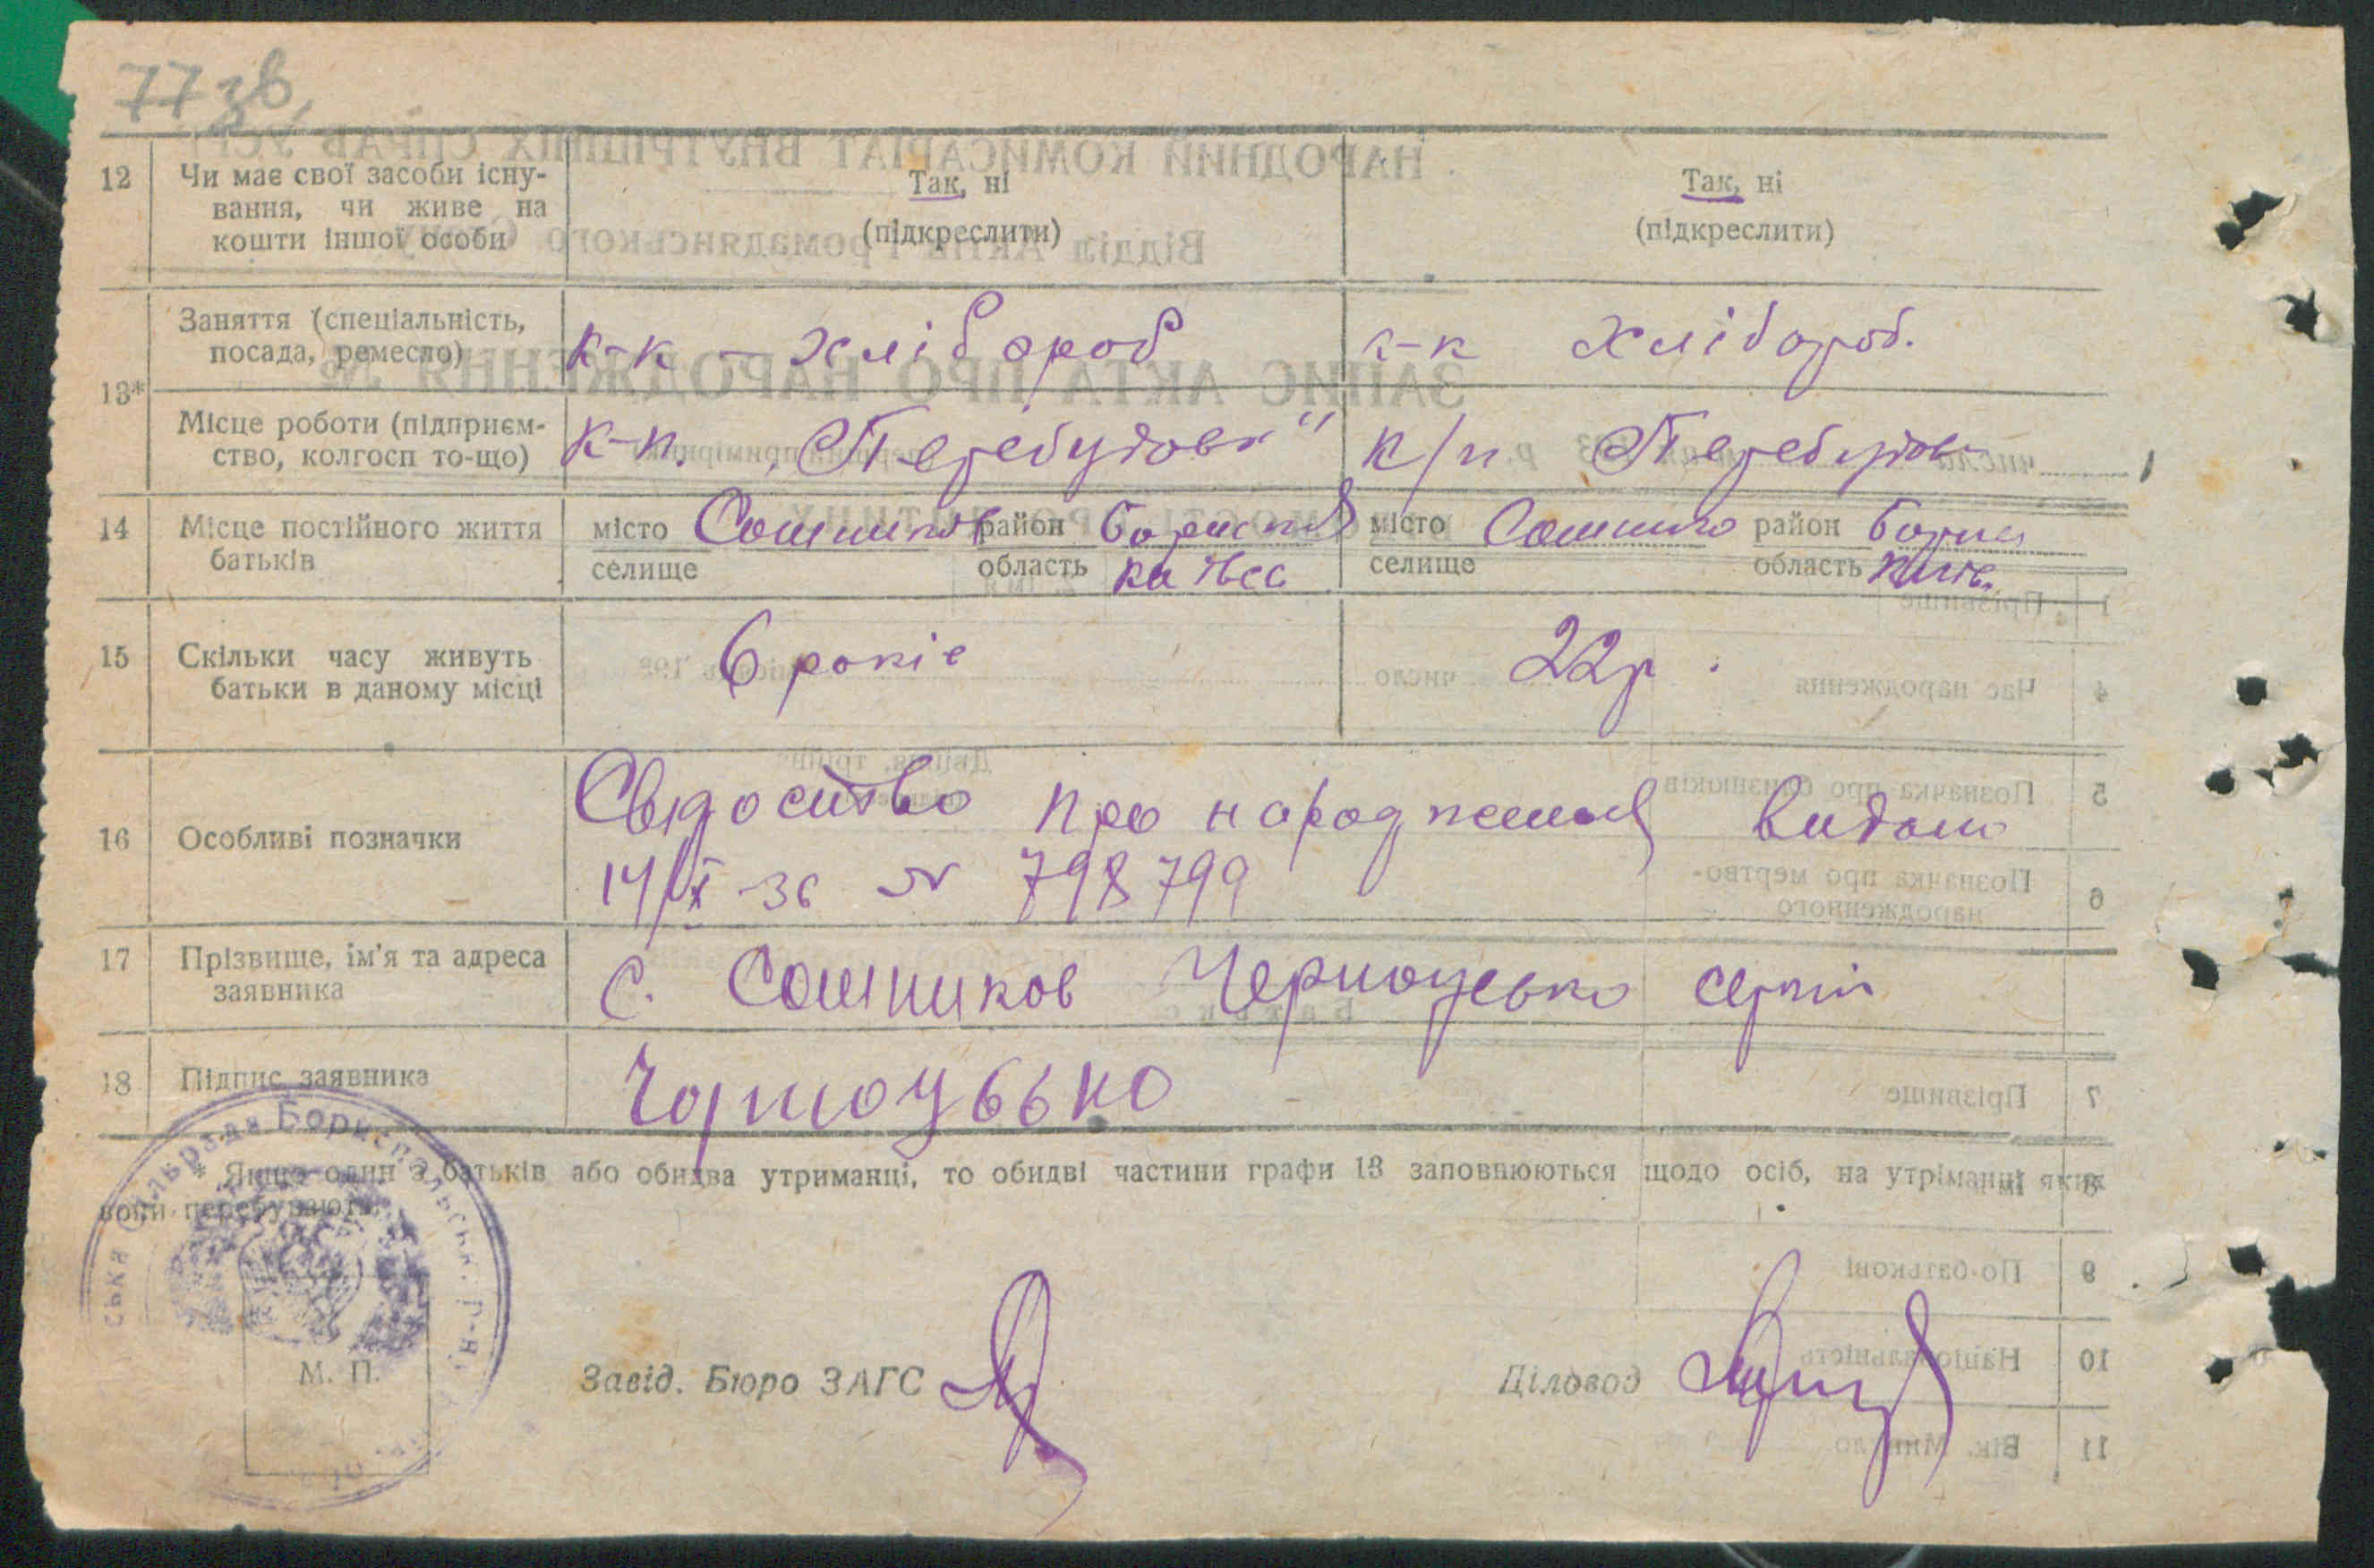 77 зв.
12 Чи має свої засоби існу- Так, ні Так, ні
вання, чи живе на (підкреслити) (підкреслити)
кошти іншої особи
13* Заняття (спеціальність, к-к - хлібороб к-к хлібороб.
посада, ремесло)
Місце роботи (підприєм- к-п. „Перебудова" к/п Перебудов
ство, колгосп то-що)
14 Місце постійного життя місто Сошников район область місто Сошнико район Борисп
батьків селище селище область Київ.
15 Скільки часу живуть 6 років 22 р.
батьки в даному місці
16 Особливі позначки Свідоцтво про народження видано
14/ІХ-36 № 798799
17 Прізвище, ім'я та адреса с. Сошников Черноусько Сергій
заявника
18 Підпис заявника Чорноусько
* Якщо один з батьків або обидва утриманці, то обидві частини графи 13 заповнюються щодо осіб, на утріманні яких
вони перебувають.
Сільрада Бориспольськ. р-н.
М. П.
Завід. Бюро ЗАГС Діловод